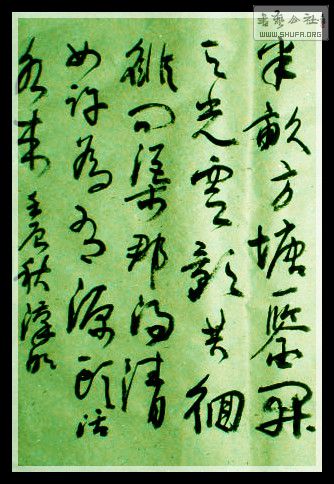 半畝方塘一鑒開
天光雲影共徊
徘問渠那得清
如許為有源頭活
水来 壬辰秋
書藝公社
WWW.SHUFA.ORG